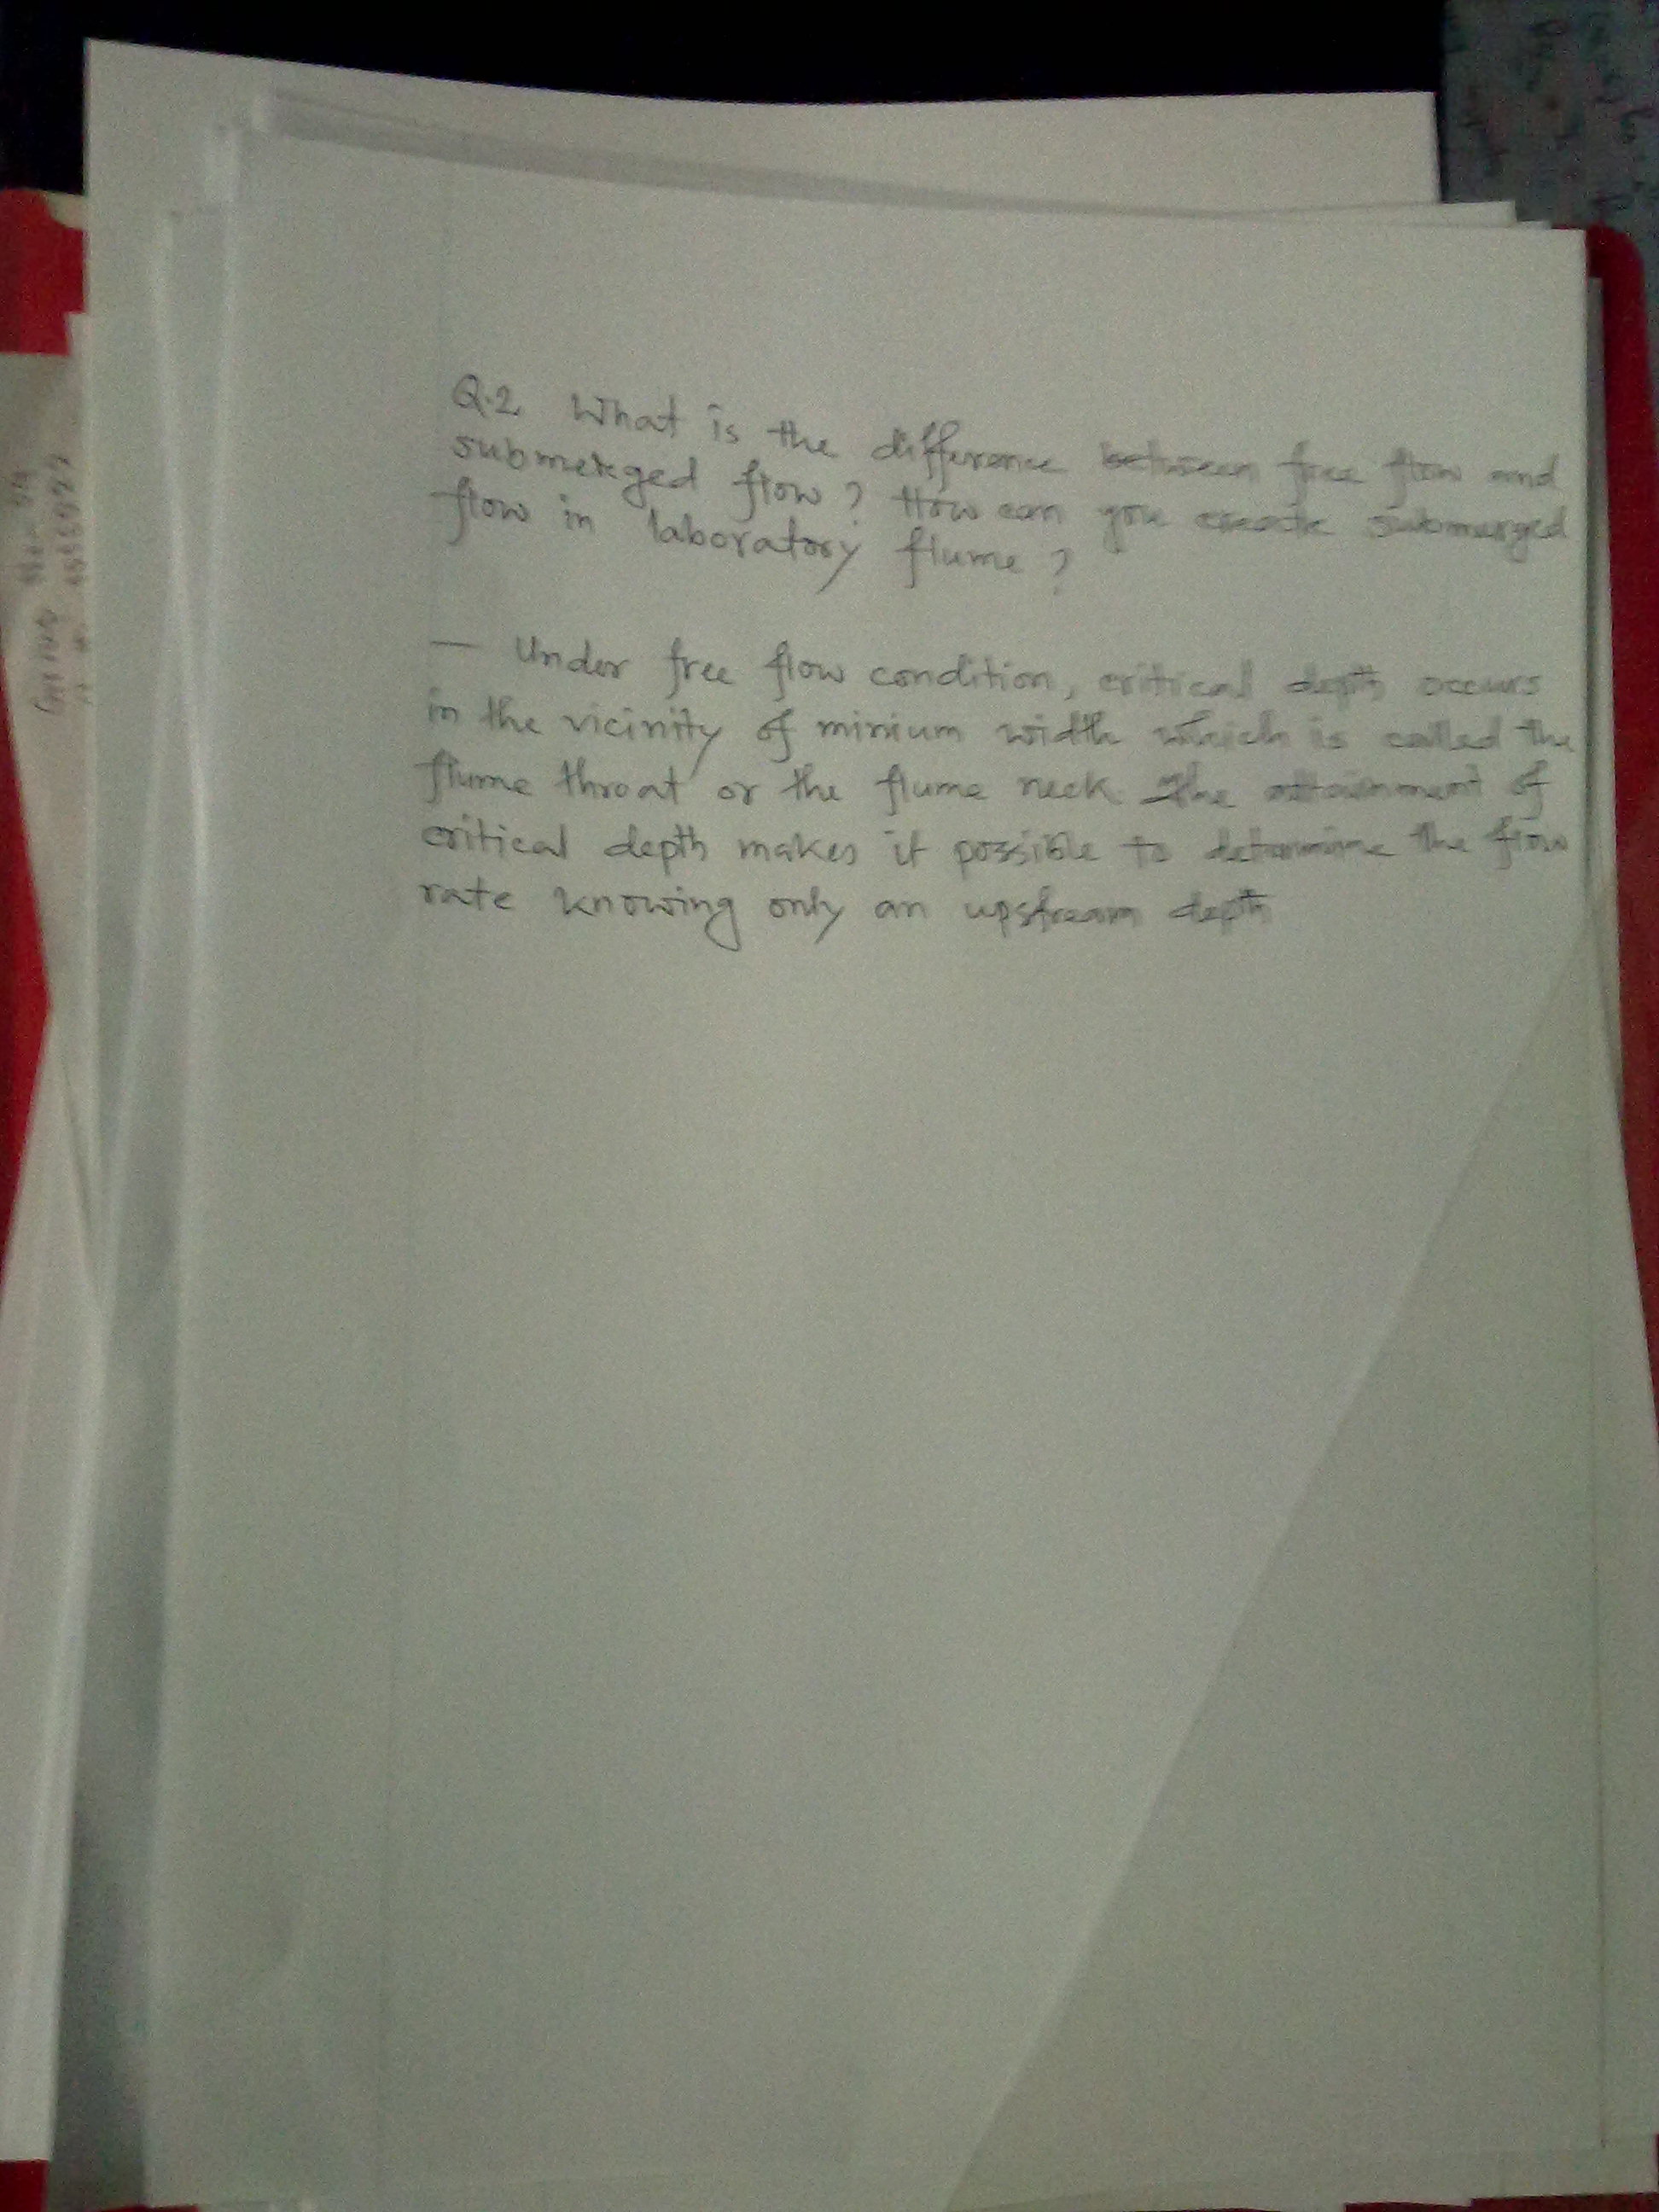 Q.2. What is the difference between free flow and
submerged flow? How can you create submerged
flow in laboratory flume?
— Under free flow condition, critical depth occurs
in the vicinity of minium width which is called the
flume throat or the flume neck. The attainment of
critical depth makes it possible to determine the flow
rate knowing only an upstream depth